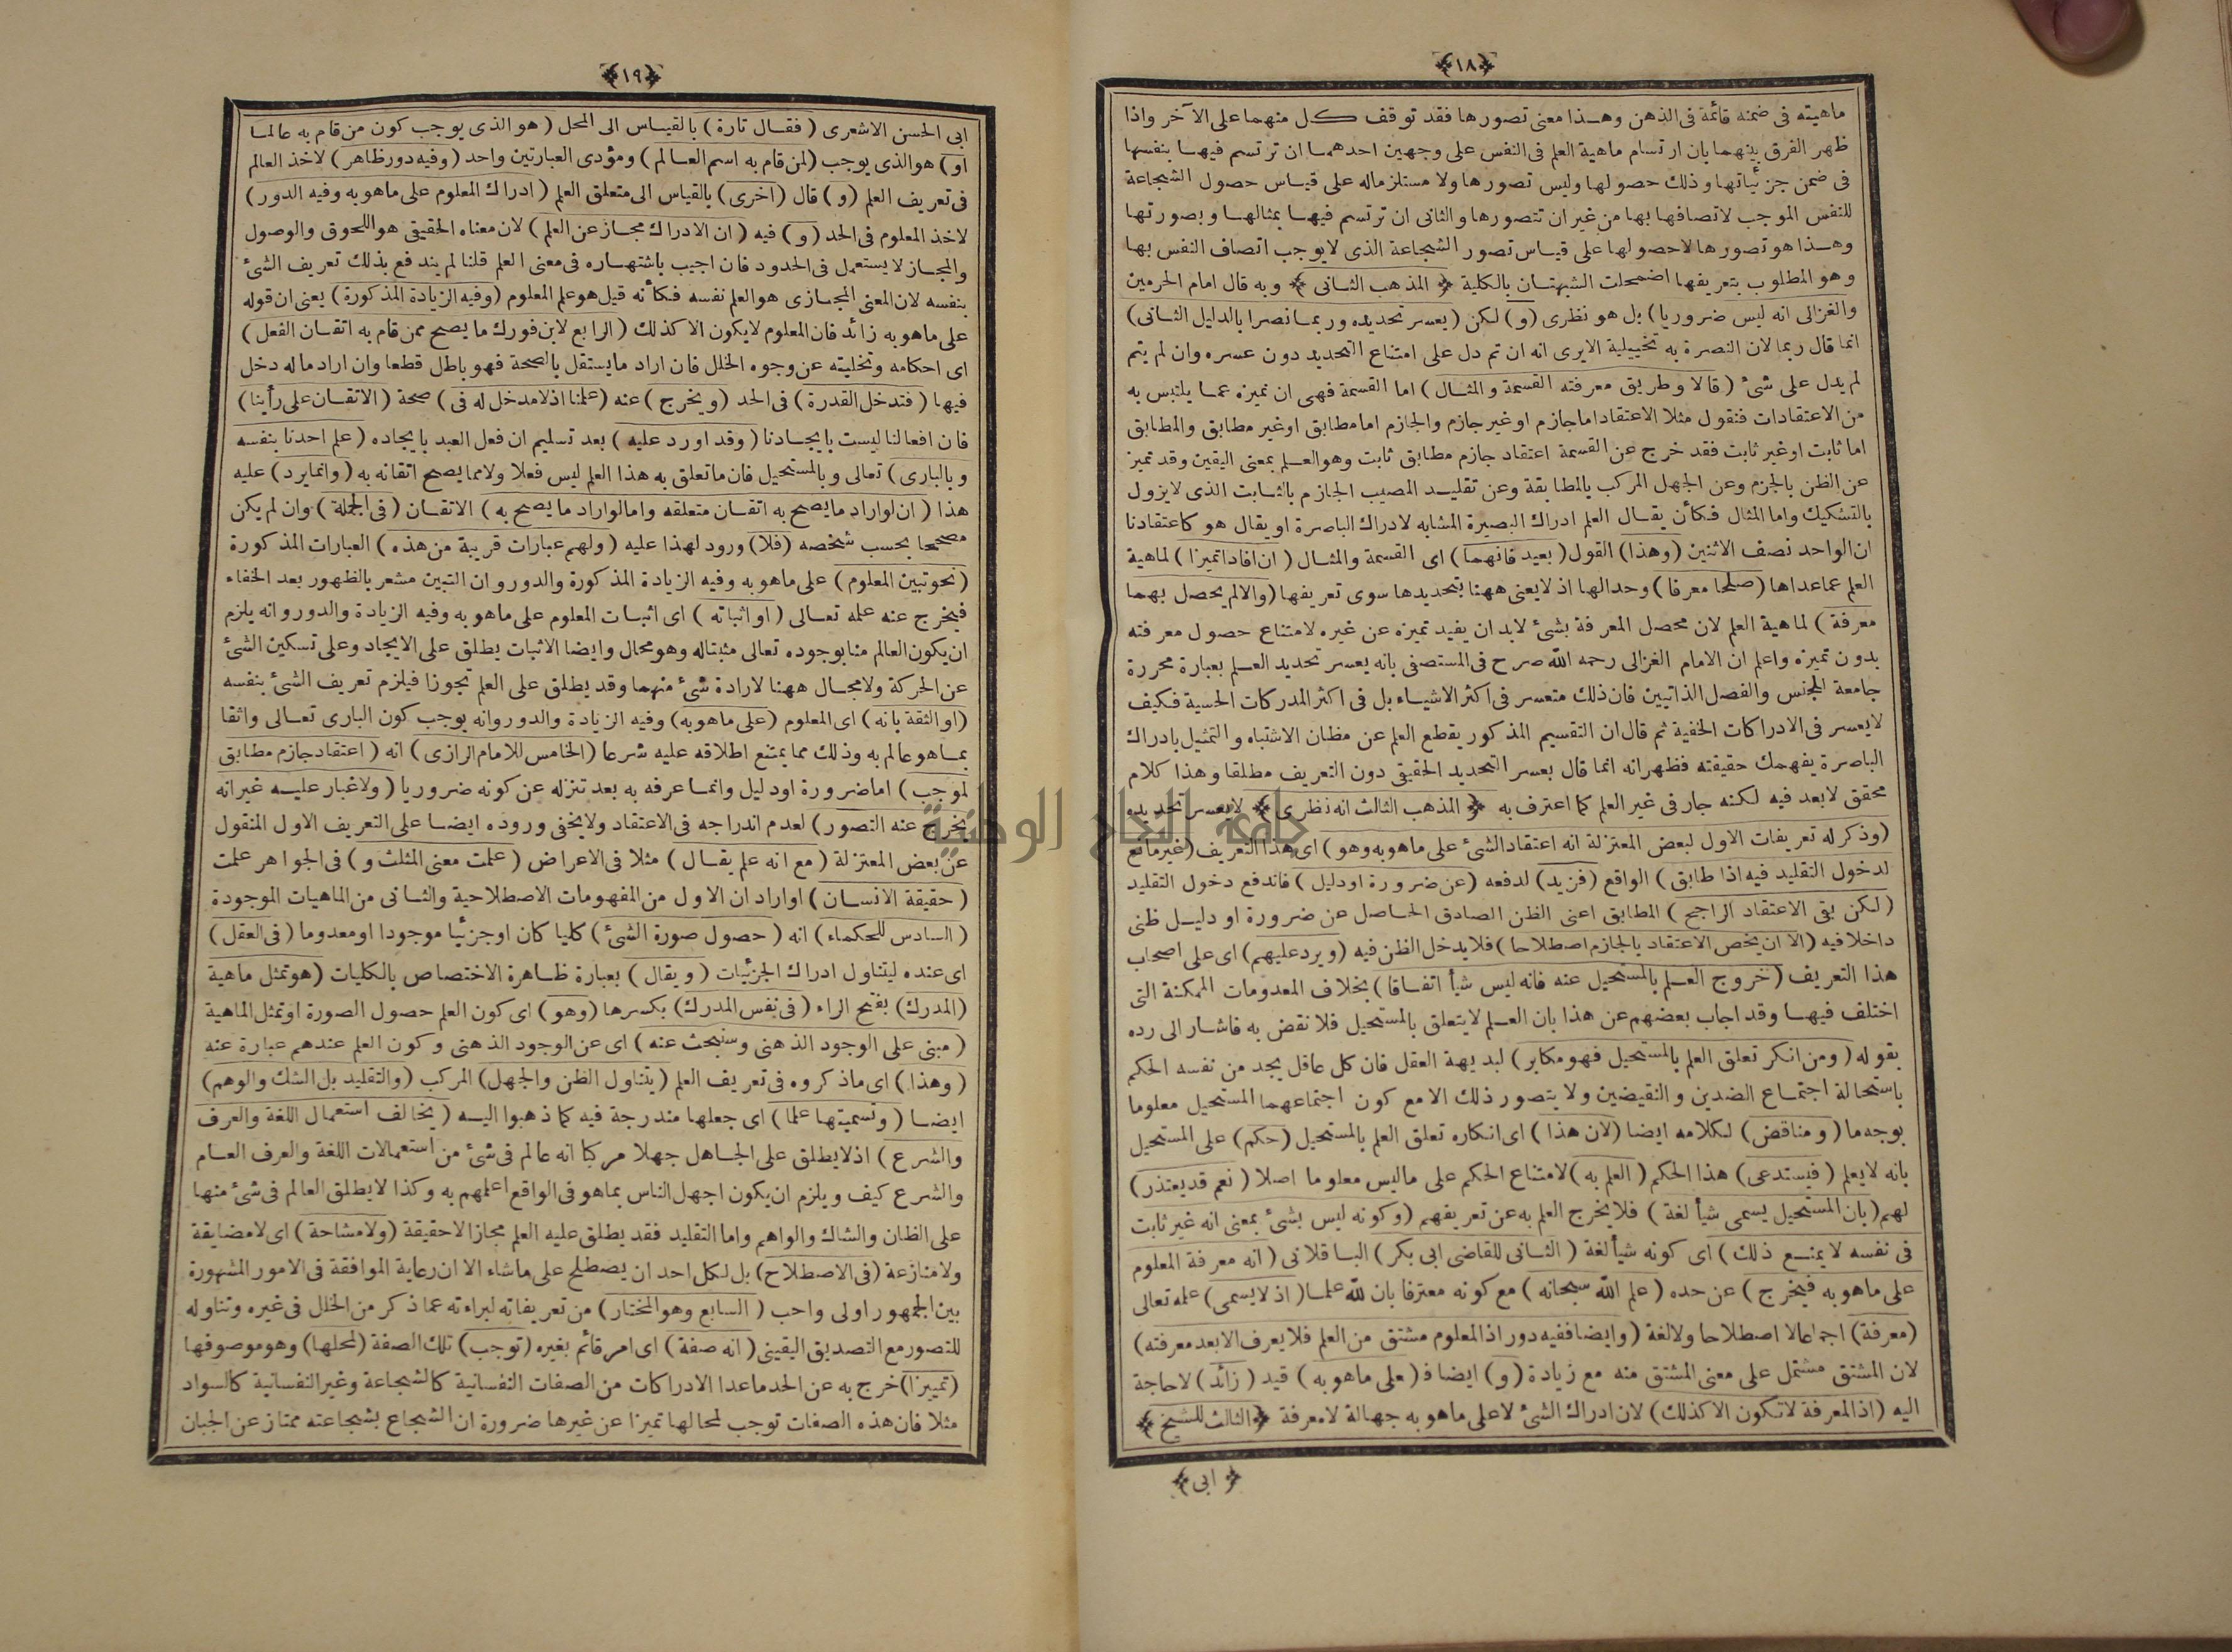 ﴿١٨﴾
ماهيته فى ضمنه قائمة فى الذهن وهـذا معنى تصورها فقد توقف كل منهما على الآخر واذا
ظهر الفرق بينهما بان ارتسام ماهية العلم فى النفس على وجهين احدهما ان ترتسم فيها بنفسها
فى ضمن جزئياتها وذلك حصولها وليس تصورها ولا مستلزما له على قياس حصول الشجاعة
للنفس الموجب لاتصافها بها من غير ان تتصورها والثانى ان ترتسم فيها بمثالها وبصورتها
وهـذا هو تصورها لاحصولها على قياس تصور الشجاعة الذى لايوجب اتصاف النفس بها
وهو المطلوب بتعريفها اضمحلت الشبهتان بالكلية ﴿ المذهب الثانى ﴾ وبه قال امام الحرمين
والغزالى انه ليس ضروريا) بل هو نظرى (و) لكن (يعسر تحديده وربما نصرا بالدليل الثانى)
انما قال ربما لان النصرة به تخييلية الايرى انه ان تم دل على امتناع التحديد دون عسره وان لم يتم
لم يدل على شئ (قالا وطريق معرفته القسمة والمثال) اما القسمة فهى ان تميزه عما يلتبس به
من الاعتقادات فنقول مثلا الاعتقاد اما جازم او غير جازم والجازم اما مطابق او غير مطابق والمطابق
اما ثابت او غير ثابت فقد خرج عن القسمة اعتقاد جازم مطابق ثابت وهو العـلم بمعنى اليقين وقد تميز
عن الظن بالجزم وعن الجهل المركب بالمطابقة وعن تقليد المصيب الجازم بالثابت الذى لايزول
بالتشكيك واما المثال فكأن يقال العلم ادراك البصيرة المشابه لادراك الباصرة او يقال هو كاعتقادنا
ان الواحد نصف الاثنين (وهذا) القول (بعيد فانهما) اى القسمة والمثال (ان افادا تميزا) لماهية
العلم عما عداها (صلحا معرفا) وحدالها اذ لايعنى ههنا بتحديدها سوى تعريفها (والالم يحصل بهما
معرفة) لماهية العلم لان محصل المعرفة بشئ لابد ان يفيد تميزه عن غيره لامتناع حصول معرفته
بدون تميزه واعلم ان الامام الغزالى رحمه الله صرح فى المستصفى بانه يعسر تحديد العـلم بعبارة محررة
جامعة للجنس والفصل الذاتيين فان ذلك متعسر فى اكثر الاشياء بل فى اكثر المدركات الحسية فكيف
لايعسر فى الادراكات الخفية ثم قال ان التقسيم المذكور يقطع العلم عن مظان الاشتباه والتمثيل بادراك
الباصرة يفهمك حقيقته فظهر انه انما قال بعسر التحديد الحقيقى دون التعريف مطلقا وهذا كلام
محقق لابعد فيه لكنه جار فى غير العلم كما اعترف به ﴿ المذهب الثالث انه نظرى ﴾ لايعسر تحديده
(وذكر له تعريفات الاول لبعض المعتزلة انه اعتقاد الشئ على ماهو به وهو) اى هذا التعريف (غير مانع
لدخول التقليد فيه اذا طابق) الواقع (فزيد) لدفعه (عن ضرورة او دليل) فاندفع دخول التقليد
(لكن بقى الاعتقاد الراجح) المطابق اعنى الظن الصادق الحاصل عن ضرورة او دليل ظنى
داخلا فيه (الا ان يخص الاعتقاد بالجازم اصطلاحا) فلايدخل الظن فيه (ويرد عليهم) اى على اصحاب
هذا التعريف (خروج العـلم بالمستحيل عنه فانه ليس شيأ اتفـاقا) بخلاف المعدومات الممكنة التى
اختلف فيها وقد اجاب بعضهم عن هذا بان العـلم لايتعلق بالمستحيل فلانقض به فاشار الى رده
بقوله (ومن انكر تعلق العلم بالمستحيل فهو مكابر) لبديهة العقل فان كل عاقل يجد من نفسه الحكم
باستحالة اجتماع الضدين والنقيضين ولا يتصور ذلك الا مع كون اجتماعهما المستحيل معلوما
بوجه ما (ومناقض) لكلامه ايضا (لان هذا) اى انكاره تعلق العلم بالمستحيل (حكم) على المستحيل
بانه لايعلم (فيستدعى) هذا الحكم (العلم به) لامتناع الحكم على ماليس معلوما اصلا (نعم قديعتذر)
لهم (بان المستحيل يسمى شيأ لغة) فلايخرج العلم به عن تعريفهم (وكونه ليس بشئ بمعنى انه غير ثابت
فى نفسه لايمنـع ذلك) اى كونه شيأ لغة (الثانى للقاضى ابى بكر) الباقلانى (انه معرفة المعلوم
على ماهو به فيخرج) عن حده (علم الله سبحانه) مع كونه معترفا بان لله علما (اذ لايسمى) علمه تعالى
(معرفة) اجماعالا اصطلاحا ولالغة (وايضا ففيه دور اذ المعلوم مشتق من العلم فلايعرف الابعد معرفته)
لان المشتق مشتمل على معنى المشتق منه مع زيادة (و) ايضا فـ (على ماهو به) قيد (زائد) لاحاجة
اليه (اذ المعرفة لاتكون الا كذلك) لان ادراك الشئ لا على ماهو به جهالة لامعرفة ﴿ الثالث للشيخ ﴾
﴿ ابى ﴾
﴿١٩﴾
ابى الحسن الاشعرى (فقـال تارة) بالقيـاس الى المحل (هو الذى يوجب كون من قام به عالما
او) هو الذى يوجب (لمن قام به اسم العـالم) ومؤدى العبارتين واحد (وفيه دور ظاهر) لاخذ العالم
فى تعريف العلم (و) قال (اخرى) بالقياس الى متعلق العلم (ادراك المعلوم على ماهو به وفيه الدور)
لاخذ المعلوم فى الحد (و) فيه (ان الادراك مجـاز عن العلم) لان معناه الحقيقى هو اللحوق والوصول
والمجـاز لا يستعمل فى الحدود فان اجيب باشتهـاره فى معنى العلم قلنا لم يندفع بذلك تعريف الشئ
بنفسه لان المعنى المجـازى هو العلم نفسه فكأنه قيل هو علم المعلوم (وفيه الزيادة المذكورة) يعنى ان قوله
على ماهو به زائد فان المعلوم لايكون الا كذلك (الرابع لابن فورك ما يصح ممن قام به اتقـان الفعل)
اى احكامه وتخليته عن وجوه الخلل فان اراد مايستقل بالصحة فهو باطل قطعا وان اراد ماله دخل
فيها (فتدخل القدرة) فى الحد (ويخرج) عنه (علمنا اذلامدخل له فى) صحة (الاتقـان على رأينا)
فان افعالنا ليست بايجـادنا (وقد اورد عليه) بعد تسليم ان فعل العبد بايجاده (علم احدنا بنفسه
وبالبارى) تعالى وبالمستحيل فان ماتعلق به هذا العلم ليس فعلا ولا مما يصح اتقانه به (وانما يرد) عليه
هذا (ان لو اراد ما يصح به اتقـان متعلقه واما لو اراد ما يصح به) الاتقـان (فى الجملة) وان لم يكن
مصححا بحسب شخصه (فلا) ورود لهذا عليه (ولهم عبارات قريبة من هذه) العبارات المذكورة
(نحو تبين المعلوم) على ماهو به وفيه الزيادة المذكورة والدور وان التبين مشعر بالظهور بعد الخفاء
فيخرج عنه علمه تعـالى (او اثباته) اى اثبـات المعلوم على ماهو به وفيه الزيادة والدور وانه يلزم
ان يكون العالم منا بوجوده تعالى مثبتا له وهو محال وايضا الاثبات يطلق على الايجاد وعلى تسكين الشئ
عن الحركة ولامجـال ههنا لارادة شئ منهما وقد يطلق على العلم تجوزا فيلزم تعريف الشئ بنفسه
(او الثقة بانه) اى المعلوم (على ماهو به) وفيه الزيادة والدور وانه يوجب كون البارى تعـالى واثقا
بمـا هو عالم به وذلك مما يمتنع اطلاقه عليه شرعا (الخامس للامام الرازى) انه (اعتقاد جازم مطابق
لموجب) اما ضرورة او دليل وانمـا عرفه به بعد تنزله عن كونه ضروريا (ولاغبار عليـه غير انه
يخرج عنه التصور) لعدم اندراجه فى الاعتقاد ولايخفى وروده ايضـا على التعريف الاول المنقول
عن بعض المعتزلة (مع انه علم يقـال) مثلا فى الاعراض (علمت معنى المثلث و) فى الجواهر علمت
(حقيقة الانسـان) او اراد ان الاول من المفهومات الاصطلاحية والثـانى من الماهيات الموجودة
(السادس للحكماء) انه (حصول صورة الشئ) كليا كان او جزئيا موجودا او معدوما (فى العقل)
اى عنده ليتناول ادراك الجزئيات (ويقال) بعبارة ظـاهرة الاختصاص بالكليات (هو تمثل ماهية
(المدرك) بفتح الراء (فى نفس المدرك) بكسرها (وهو) اى كون العلم حصول الصورة او تمثل الماهية
(مبنى على الوجود الذهنى وسنبحث عنه) اى عن الوجود الذهنى وكون العلم عندهم عبارة عنه
(وهذا) اى ماذكروه فى تعريف العلم (يتناول الظن والجهل) المركب (والتقليد بل الشك والوهم)
ايضـا (وتسميتها علما) اى جعلها مندرجة فيه كما ذهبوا اليـه (يخالف استعمال اللغة والعرف
والشرع) اذ لايطلق على الجـاهل جهلا مركبا انه عالم فى شئ من استعمالات اللغة والعرف العـام
والشرع كيف ويلزم ان يكون اجهل الناس بماهو فى الواقع اعلمهم به وكذا لايطلق العالم فى شئ منها
على الظان والشاك والواهم واما التقليد فقد يطلق عليه العلم مجازا لاحقيقة (ولامشاحة) اى لامضايقة
ولامنازعة (فى الاصطلاح) بل لكل احد ان يصطلح على ماشاء الا ان رعاية الموافقة فى الامور المشهورة
بين الجمهور اولى واحب (السابع وهو المختار) من تعريفاته لبراءته عما ذكر من الخلل فى غيره وتناوله
للتصور مع التصديق اليقينى (انه صفة) اى امر قائم بغيره (توجب) تلك الصفة (لمحلها) وهو موصوفها
(تمييزا) خرج به عن الحد ماعدا الادراكات من الصفات النفسانية كالشجاعة وغير النفسانية كالسواد
مثلا فان هذه الصفات توجب لمحالها تميزا عن غيرها ضرورة ان الشجاع بشجاعته ممتاز عن الجبان
جامعة النجاح الوطنية